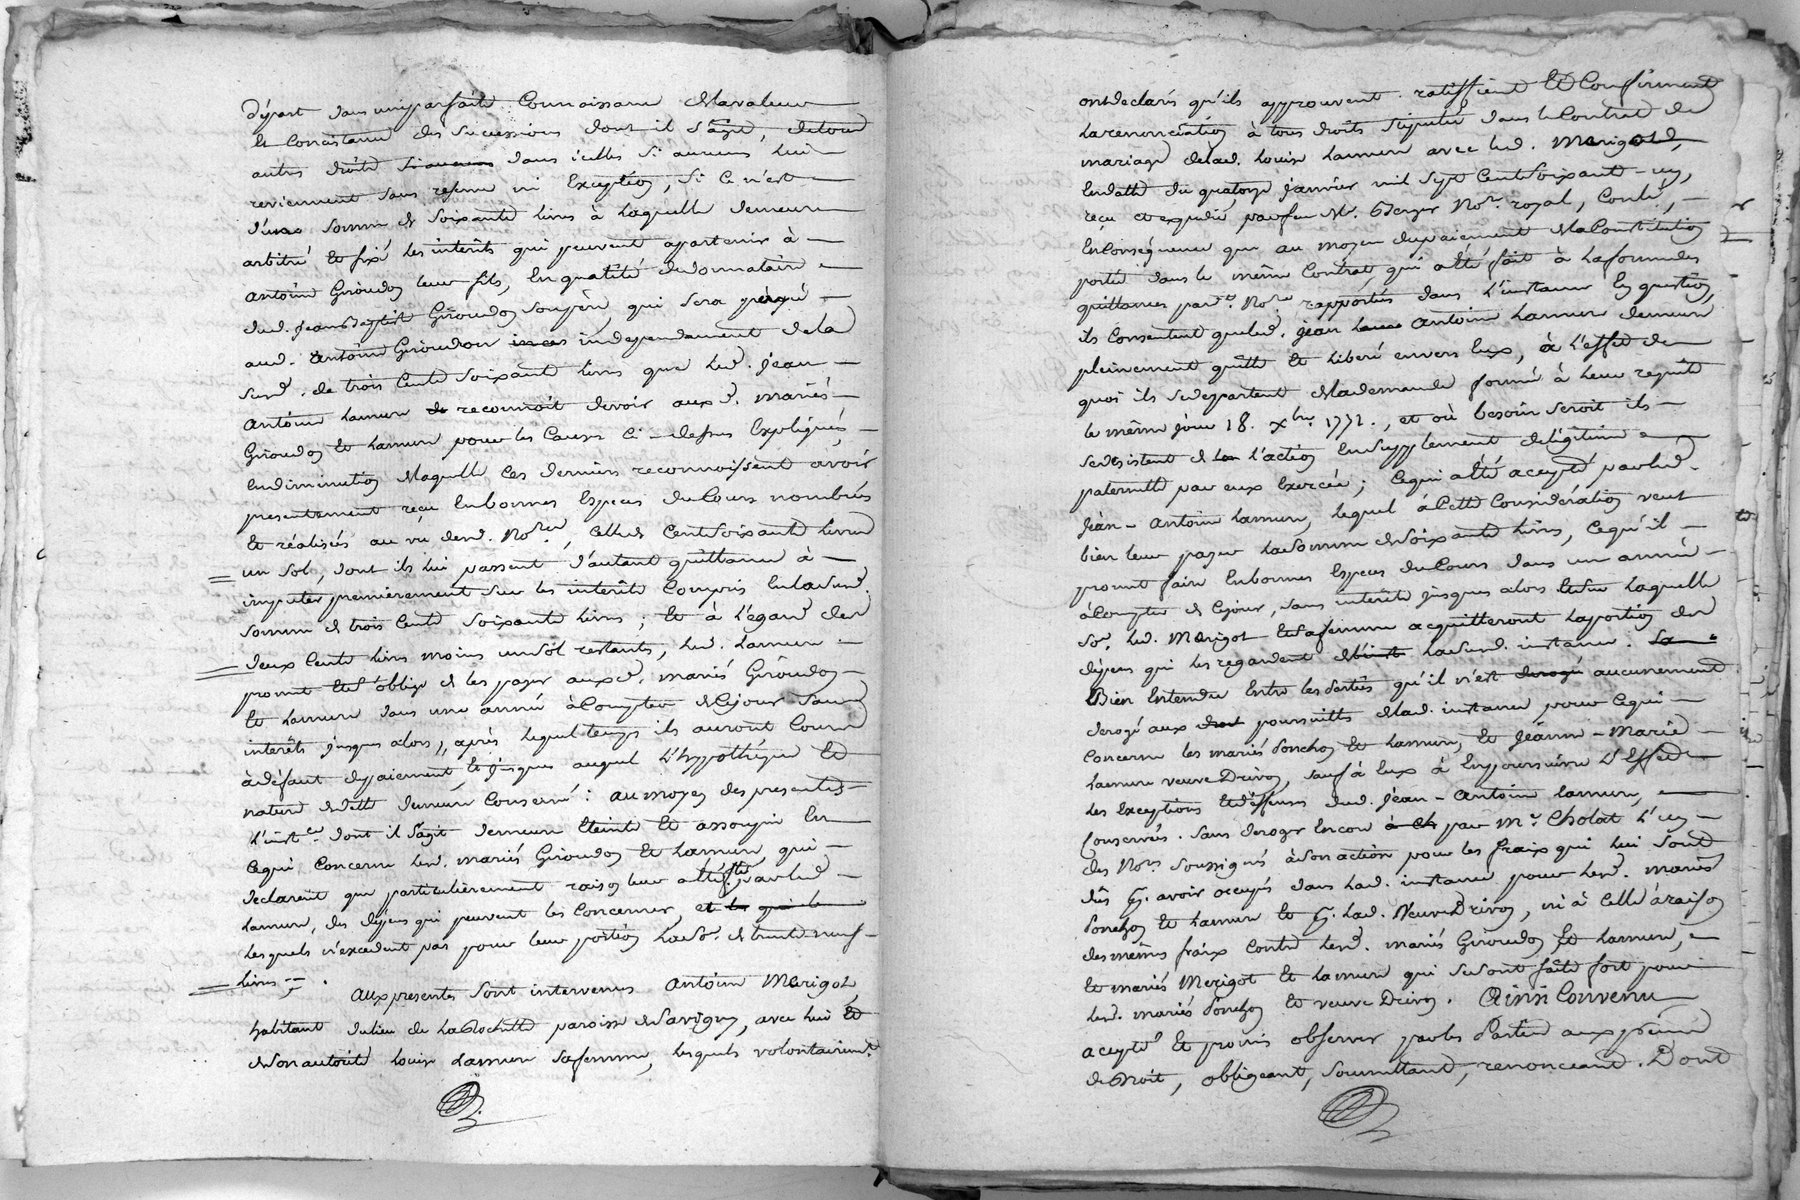 départ dans une parfaite Connoissance de la valeur
& Consistance des successions dont il s'agit, de tous
autres droits si aucuns dans icelles si aucuns, lui
reviennent sans reserve ni Exception, si Ce n'est
d'une somme de soixante livres à laquelle demeure
arbitré et fixé les interêts qui peuvent apartenir à
Antoine Giroudon leur fils, En qualité de donnataire
dud. Jean Baptiste Giroudon son père, qui sera
aud. Antoine Giroudon independament de la
susd. de trois Cents soixante livres que led. Jean
Antoine Lamure reconnoit devoir auxd. mariés
Giroudon Et Lamure pour les Causes Ci-dessus Expliquées,
En diminution de laquelle Ces derniers reconnoissent avoir
presentement reçu En bonnes Especes du Cours nombrées
Et réalisées au vu desd. Nores, Celle de Cent soixante livres
un sol, dont ils lui passent d'autant quittance à
imputer premierement sur les interêts Compris En lasusd.
somme de trois Cents soixante livres ; Et à l'égard des
deux Cents livres moins un sol restants, led. Lamure
promet Et s'oblige de les payer auxd. mariés Giroudon
Et Lamure dans une année à Compter de Cejour sans
interêts jusques alors, après lequel temps ils auront Cours
à défaut de paiement, Et jusques auquel l'hypothéque Et
nature de dette demeure Conservé : au moyen des presentes
l'inst.ce dont il s'agit demeure Eteinte Et assoupie En
Cequi Concerne lesd. mariés Giroudon Et Lamure qui
declarent que particulièrement raison leur a été fte par led.
Lamure, des dépens qui peuvent les Concerner, et
lesquels n'excedent pas pour leur portion la so. de trente neuf
livres.
Aux presentes sont intervenus Antoine Merigot,
habitant du lieu de la Rochette paroisse de Savigny, avec lui Et
de son autorité Louise Lamure sa femme, lesquels volontairemt.
ont declarés qu'ils approuvent, ratiffient Et Confirment
la renonciation à tous droits stipulée dans le Contrat de
mariage de lad. Louise Lamure avec led. Merigot,
En datte du quatorze janvier mil sept Cent soixante-un,
reçu et expedié par feu Me. Berger Nore. royal, Conlé,
En Conséquence que au moyen du paiement de la Constitution
portée dans le même Contrat, qui a été fait à la forme des
quittances pard. Nore rapportées dans l'instance En question,
ils Consentent que led. Jean Antoine Lamure demeure
pleinement quitte Et liberé envers Eux, à l'effet de
quoi ils se departent de la demande formée à leur requête
le même jour 18. xbre. 1772., et où besoin seroit ils
se desistent de l'action En supplement de légitime
paternelle par eux Exercée ; Cequi a été accepté par led.
Jean-Antoine Lamure, lequel à Cette Consideration veut
bien leur payer la somme de soixante livres, Cequ'il
promet faire En bonnes Especes du Cours dans une année
à Compter de Cejour, sans interêts jusques alors Et sur laquelle
so. led. Merigot Et sa femme acquitteront la portion des
dépens qui les regardent de la susd. instance.
Bien Entendu Entre les Parties qu'il n'est derogé aucunement
derogé aux poursuittes de lad. instance pour Cequi
Concerne les mariés Ponchon Et Lamure, Et Jeanne-Marie
Lamure veuve Drivon, sauf à Eux à En poursuivre l'Effet
les Exceptions Et deffenses dud. Jean-Antoine Lamure,
Conservées. Sans deroger Encore par Me. Cholat l'un
des Nores soussignés à son action pour les fraix qui lui sont
dûs pr. avoir occupés dans lad. instance pour lesd. mariés
Ponchon Et Lamure Et pr. lad. Veuve Drivon, ni à Celle à raison
des mêmes fraix Contre lesd. mariés Giroudon Et Lamure,
Et mariés Merigot Et Lamure qui se sont faits fort pour
lesd. mariés Ponchon Et veuve Drivon. Ainsi Convenu
accepté Et promis observer par les Parties aux peines
de Droit, obligeant, soumettant, renonceant. Dont